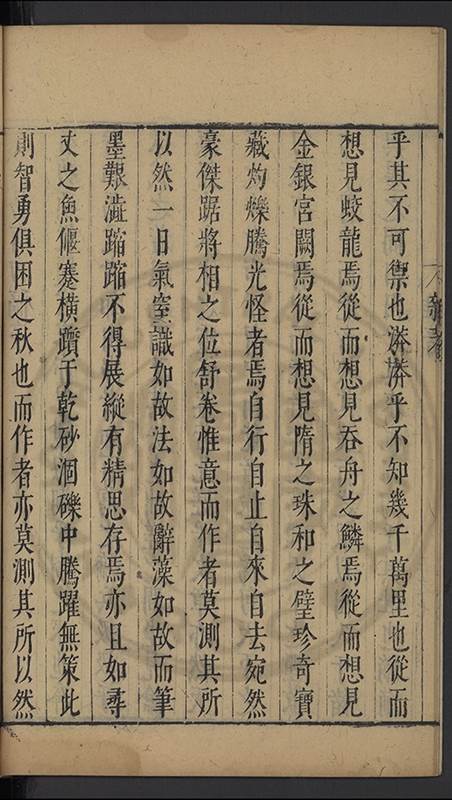 乎其不可禦也漭漭乎不知幾千萬里也從而
想見蛟龍焉從而想見吞舟之鱗焉從而想見
金銀宮闕焉從而想見隋之珠和之璧珍奇寶
藏灼爍騰光怪者焉自行自止自來自去宛然
豪傑踞將相之位舒卷惟意而作者莫測其所
以然一日氣窒識如故法如故辭藻如故而筆
墨艱澁蹜蹜不得展縱有精思存焉亦且如尋
丈之魚偃蹇橫躓于乾砂涸礫中騰躍無策此
則智勇俱困之秋也而作者亦莫測其所以然